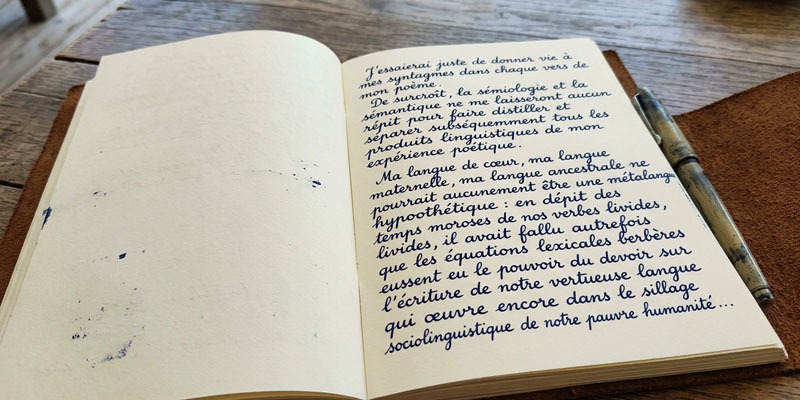 J'essaierai juste de donner vie à
mes syntagmes dans chaque vers de
mon poème.
De surcroît, la sémiologie et la
sémantique ne me laisseront aucun
répit pour faire distiller et
séparer subséquemment tous les
produits linguistiques de mon
expérience poétique.
Ma langue de cœur, ma langue
maternelle, ma langue ancestrale ne
pourrait aucunement être une métalangue
hypoothétique : en dépit des
temps moroses de nos verbes livides,
livides, il avait fallu autrefois
que les équations lexicales berbères
eussent eu le pouvoir du devoir sur
l'écriture de notre vertueuse langue
qui œuvre encore dans le sillage
sociolinguistique de notre pauvre humanité...